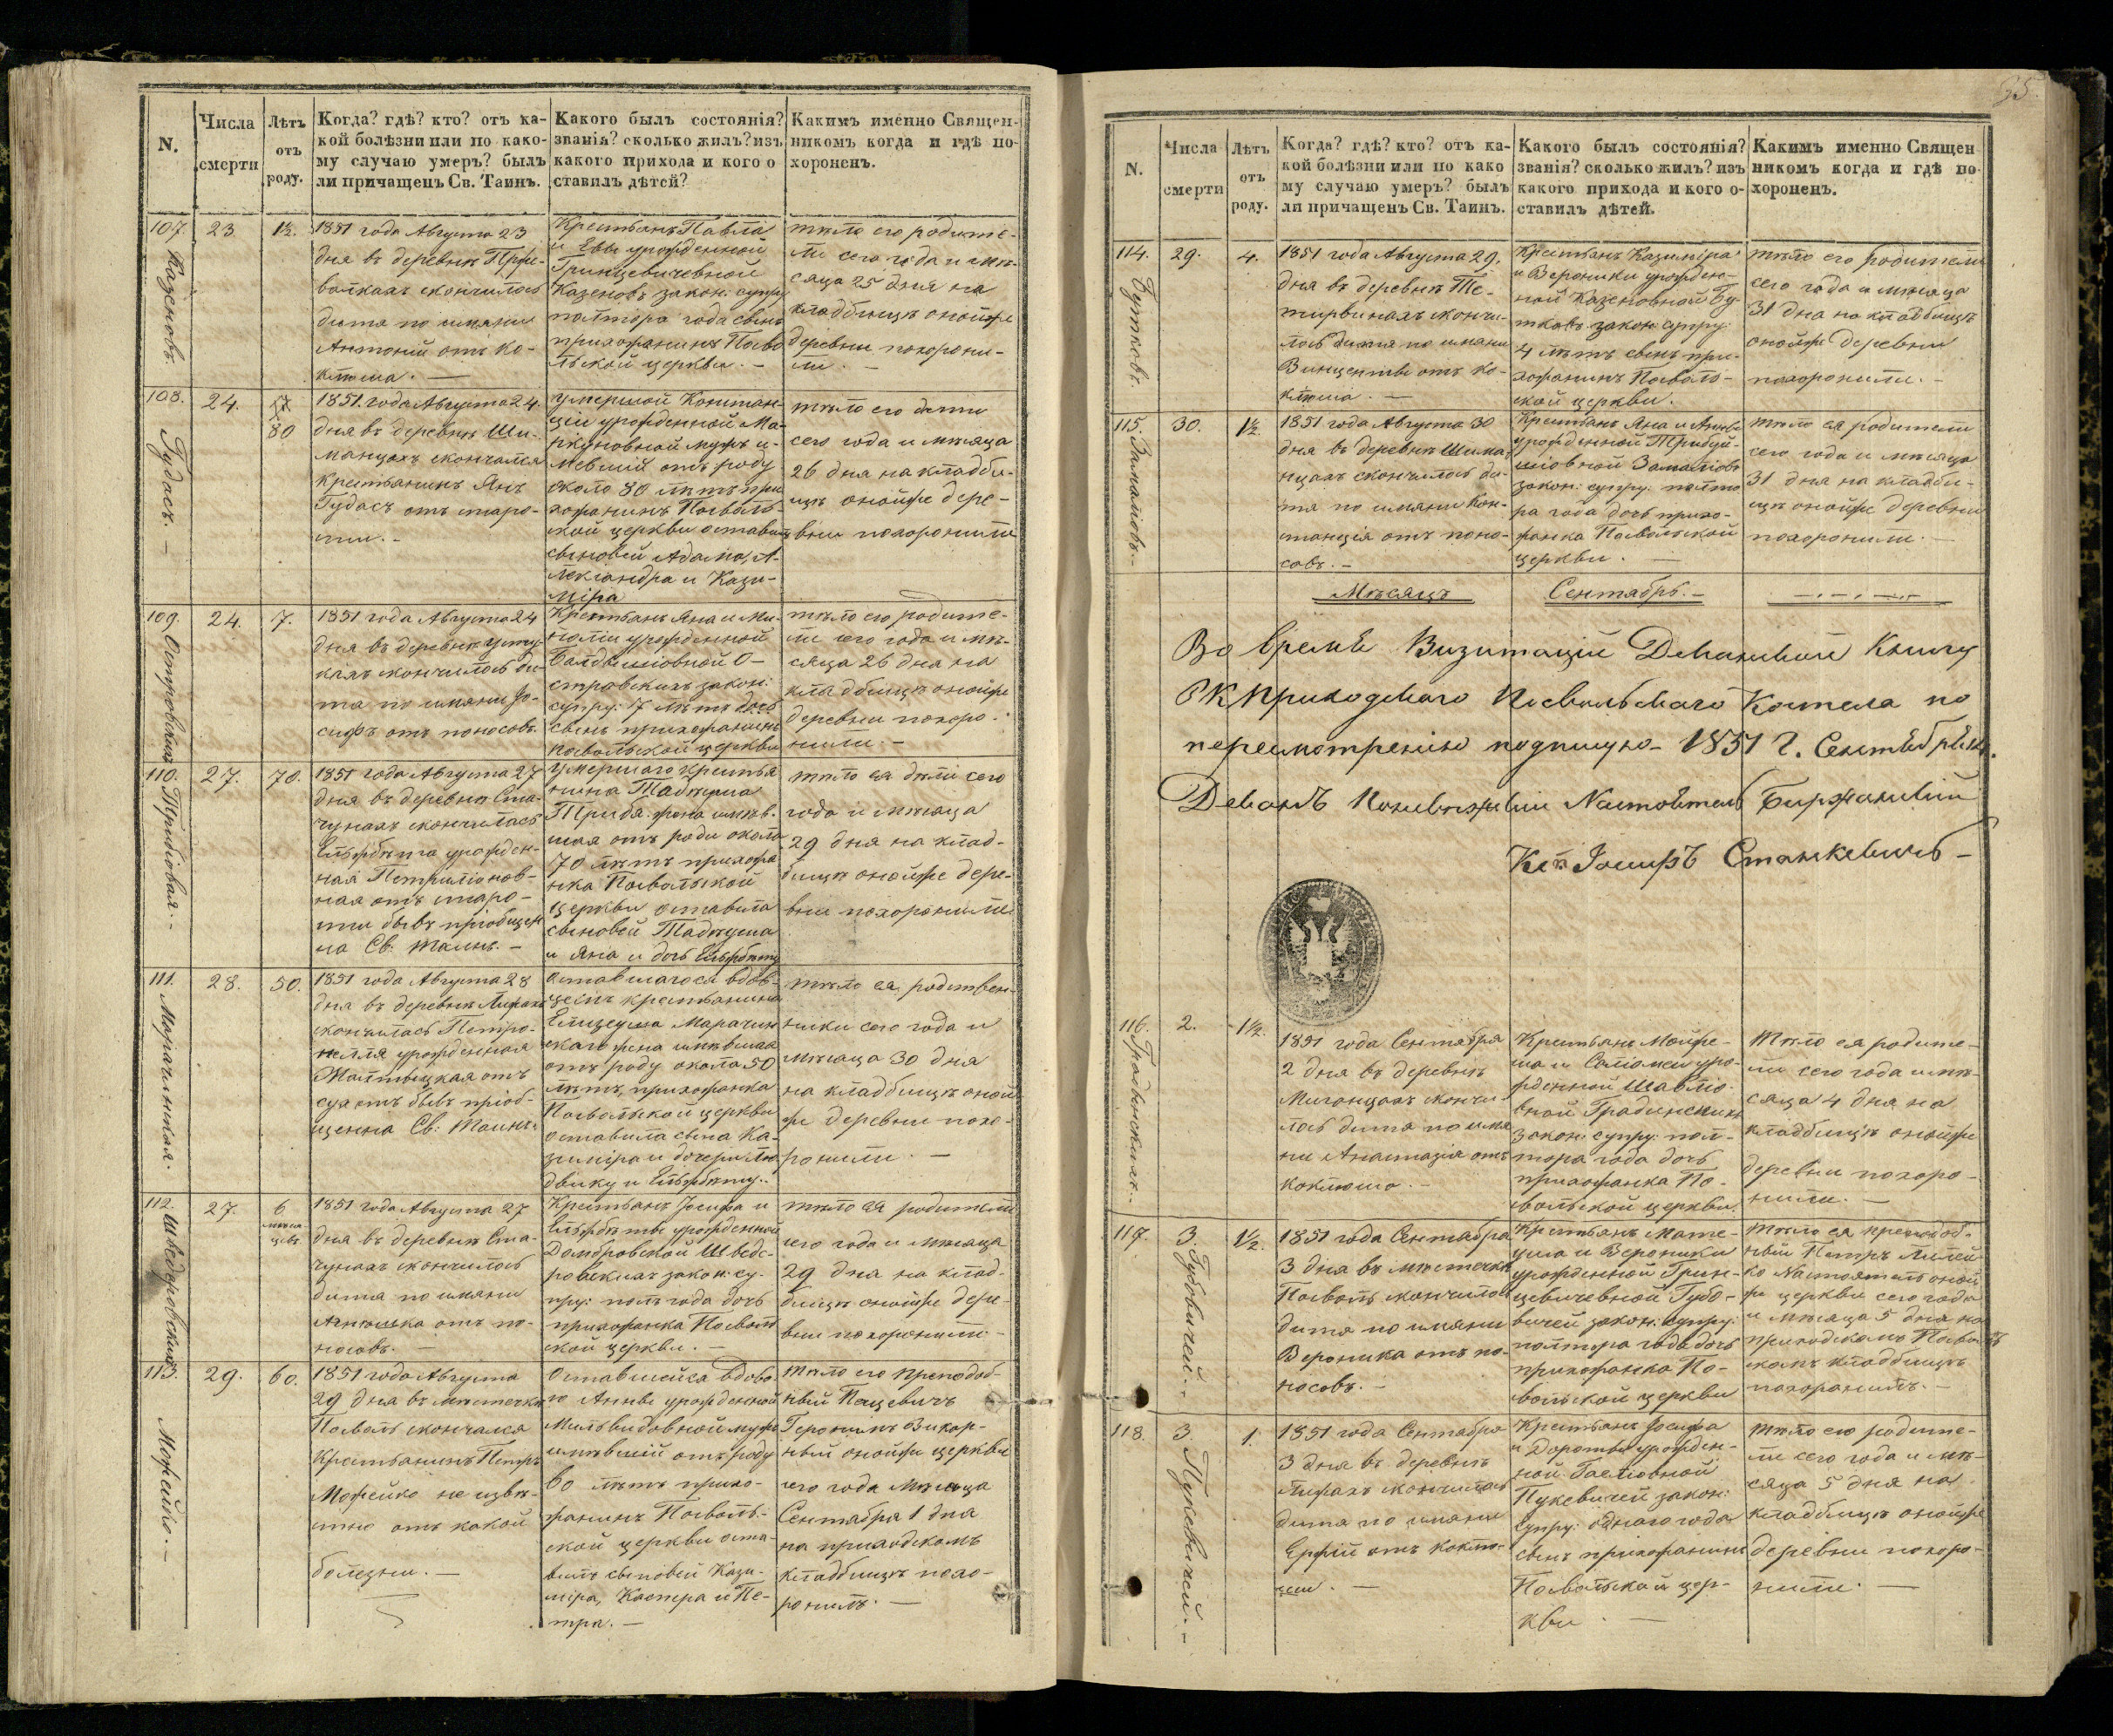 N.
Числа
смерти
Лѣтъ
отъ
роду.
Когда? гдѣ? кто? отъ ка-
кой болѣзни или по како-
му случаю умеръ? былъ
ли причащенъ Св. Таинъ.
Какого былъ состоянія?
званія? сколько жилъ? изъ
какого прихода и кого о
ставилъ дѣтей?
Какимъ именно Священ-
никомъ когда и гдѣ по-
хороненъ.
107.
Казеновъ.
23.
1½.
1851 года Августа 23
дня въ деревнѣ
скончилось
дитя по имяни
Антоній отъ ко-
клюша. —
Крестьянъ Павла
и Евы урожденной
Гринцевичевной
Казеновъ закон: супру
полтора года сынъ
прихожанинъ Посво
льской церкви. —
тѣло его родите-
ли сего года и мѣ-
сяца 25 дня на
кладбищѣ онойже
деревни похорони-
ли. —
108.
Гудасъ. —
24.
80
1851. года Августа 24.
дня въ деревнѣ Ши-
манцахъ скончался
крестьянинъ Янъ
Гудасъ отъ старо-
сти. —
умершой Констан-
ціи урожденной Ма-
мужъ и-
мевшій отъ роду
около 80 лѣтъ при
хожанинъ Посволь-
ской церкви оставилъ
сыновей Адама, А-
лександра и Кази-
міра
тѣло его дѣти
сего года и мѣсяца
26 дня на кладби-
щѣ онойже дере-
вни похоронили
109.
Островскихъ
24.
7.
1851 года Августа 24
дня въ деревнѣ
скончилось ди-
тя по имяни Іо-
сифъ отъ поносовъ.
Крестьянъ Яна и
урожденной
О-
стровскихъ закон:
супру: 7 лѣтъ
сынъ прихожанинъ
посвольской церкви
тѣло его родите-
ли сего года и мѣ-
сяца 26 дня на
кладбищѣ онойже
деревни похоро-
нили. —
110.
27.
70.
1851 года Августа 27
дня въ деревнѣ Ста-
чунахъ скончилась
Ельжбѣта урожден-
ная
ная отъ старо-
сти бывъ пріобщен
на Св: таинъ. —
умершаго крестья
нина Тадѣуша
жена имѣв-
шая отъ роду около
70 лѣтъ прихожа
нка Посвольской
церкви оставила
сыновей Тадѣуша
и Яна и дочь Ельжбѣту
тѣло ея дѣти сего
года и мѣсяца
29 дня на клад-
бищѣ онойже дере-
вни похоронили
111.
28.
50.
1851 года Августа 28
дня въ деревнѣ
скончилась Петро-
нелля урожденная
отъ
сухотъ бывъ пріоб-
щенна Св: Таинъ.
Оставшагося вдов-
цемъ крестьянина
Елизеуша Марачин
скаго жена имѣвшая
отъ роду около 50
лѣтъ, прихожанка
Посвольской церкви
оставила сына Ка-
зиміра и дочери Лю
двику и Ельжбѣту..
тѣло ея родствен-
ники сего года и
мѣсяца 30 дня
на кладбищѣ оной
же деревни похо-
ронили. —
112.
27.
6
мѣся
цевъ
1851 года Августа 27
дня въ деревнѣ Ста-
чунахъ скончилось
дитя по имяни
отъ по-
носовъ. —
Крестьянъ Іосифа и
Ельжбѣты урожденной
Домбровской Шведе-
ровскихъ закон: су-
пру: полъ года дочь
прихожанка Посволь
ской церкви. —
тѣло ея родители
сего года и мѣсяца
29 дня на клад-
бищѣ онойже дере-
вни похоронили —
113.
Можейко. —
29.
60.
1851 года Августа
29 дня въ мѣстечкѣ
Посволь скончался
Крестьянинъ Петръ
Можейко не извѣ-
стно отъ какой
болезни. —
Оставшейся вдово
ю Анны урожденной
мужъ
имѣвшій отъ роду
60 лѣтъ прихо-
жанинъ Посволь-
ской церкви оста-
вилъ сыновей Кази-
міра, Каспера и Пе-
тра. —
тѣло его преподоб-
ный Пацевичъ
Геронимъ Викар-
ный онойже церкви
сего года мѣсяца
Сентября 1 дня
на приходскомъ
кладбищѣ похо-
ронилъ. —
N.
Числа
смерти
Лѣтъ
отъ
роду.
Когда? гдѣ? кто? отъ ка-
кой болѣзни или по како
му случаю умеръ? былъ
ли причащенъ Св. Таинъ.
Какого былъ состоянія?
званія? сколько жилъ? изъ
какого прихода и кого о-
ставилъ дѣтей.
Какимъ именно Священ
никомъ когда и гдѣ по-
хороненъ.
114.
Бутковъ.
29.
4.
1851 года Августа 29.
дня въ деревнѣ Те-
тирвинахъ скончи-
лось дитя по имяни
Винцентій отъ ко-
клюша. —
Крестьянъ Казиміра
и Вероники урожден-
ной Казеновной Бу-
тковъ закон: супру:
4 лѣтъ сынъ при-
хожанинъ Посволь-
ской церкви.
тѣло его родители
сего года и мѣсяца
31 дня на кладбищѣ
онойже деревни
похоронили. —
115.
30.
1½
1851 года Августа 30
дня въ деревнѣ Шима-
нцахъ скончилось ди-
тя по имяни Кон-
станція отъ поно-
совъ. —
Крестьянъ Яна и Анны
урожденной
закон: супру: полто
ра года дочь прихо-
жанка Посвольской
церкви. —
тѣло ея родители
сего года и мѣсяца
31 дня на кладби-
щѣ онойже деревни
похоронили. —
Мѣсяцъ Сентябрь. —
Во время Визитаціи Деканской Книгу
РК Приходскаго Посвольскаго Костела по
пересмотренію подпишую — 1851 г. Сентября
Деканъ Поневѣжскій Настоятель Биржанскій
Кс: Іосифъ Станкевичъ —
116.
Градинскихъ —
2.
1½.
1851 года Сентября
2 дня въ деревнѣ
Мигонцахъ скончи
лось дитя по имя
ни Анастазія отъ
коклюша. —
Крестьянъ Мойже-
ша и Саломеи уро-
жденной
вной Градинскихъ
закон: супру: пол-
тора года дочь
прихожанка По-
свольской церкви.
Тѣло ея родите-
ли сего года и мѣ-
сяца 4 дня на
кладбищѣ онойже
деревни похоро-
нили. —
117.
Губовичей. —
3.
1½
1851 года Сентября
3 дня въ мѣстечкѣ
Посволь скончилось
дитя по имяни
Вероника отъ по-
носовъ. —
Крестьянъ Мате-
уша и Вероники
урожденной Грин-
цевичевной Губо-
вичей закон: супру:
полтора года дочь
прихожанка По-
свольской церкви
тѣло ея преподоб-
ный Петръ
Настоятель оной
же церкви сего года
и мѣсяца 5 дня на
приходскомъ Посволь
скомъ кладбищѣ
похоронилъ. —
118.
Пукевичей. —
3.
1.
1851 года Сентября
3 дня въ деревнѣ
скончилось
дитя по имяни
Ержій отъ коклю-
ша. —
Крестьянъ Іосифа
и Дороты урожден-
ной
Пукевичей закон:
супру: одного года
сынъ прихожанинъ
Посвольской цер-
кви. —
тѣло его родите-
ли сего года и мѣ-
сяца 5 дня на
кладбищѣ онойже
деревни похоро-
нили. —